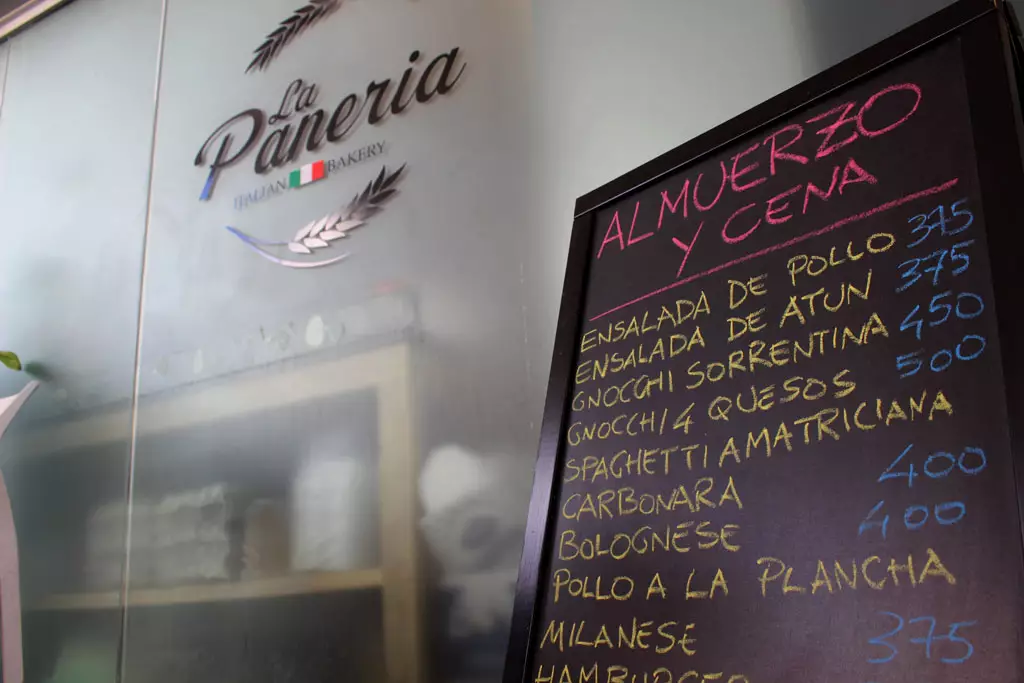 La
Paneria
ITALIAN BAKERY
ALMUERZO
Y CENA
ENSALADA DE POLLO 375
ENSALADA DE ATUN 375
GNOCCHI SORRENTINA 450
GNOCCHI 4 QUESOS 500
SPAGHETTI AMATRICIANA
CARBONARA 400
BOLOGNESE 400
POLLO A LA PLANCHA
MILANESE 375